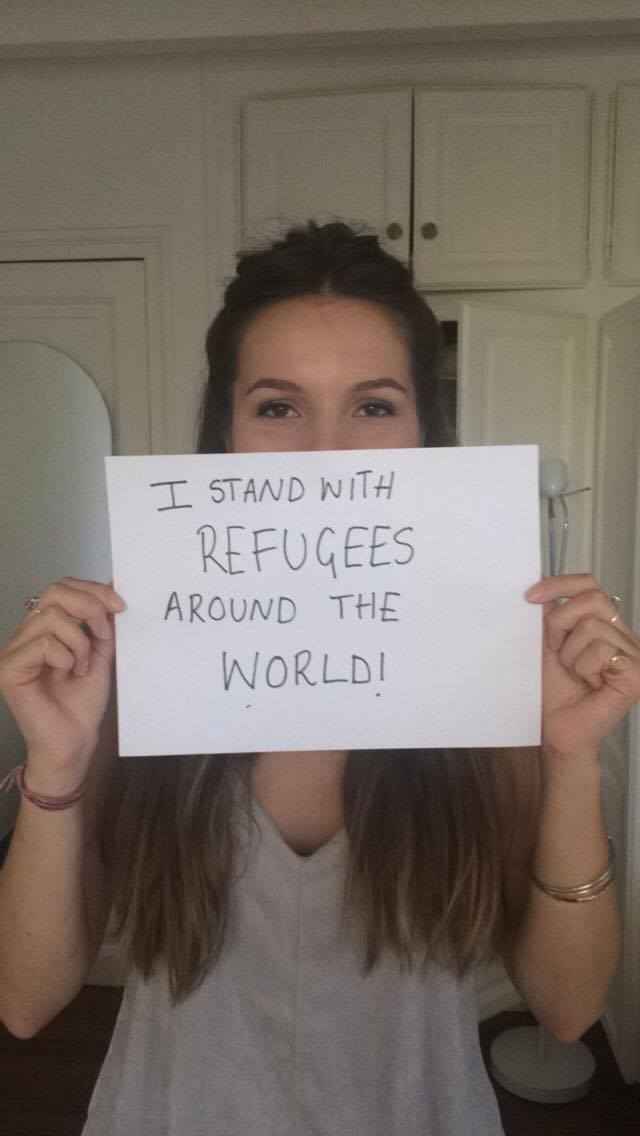 I STAND WITH
REFUGEES
AROUND THE
WORLD!